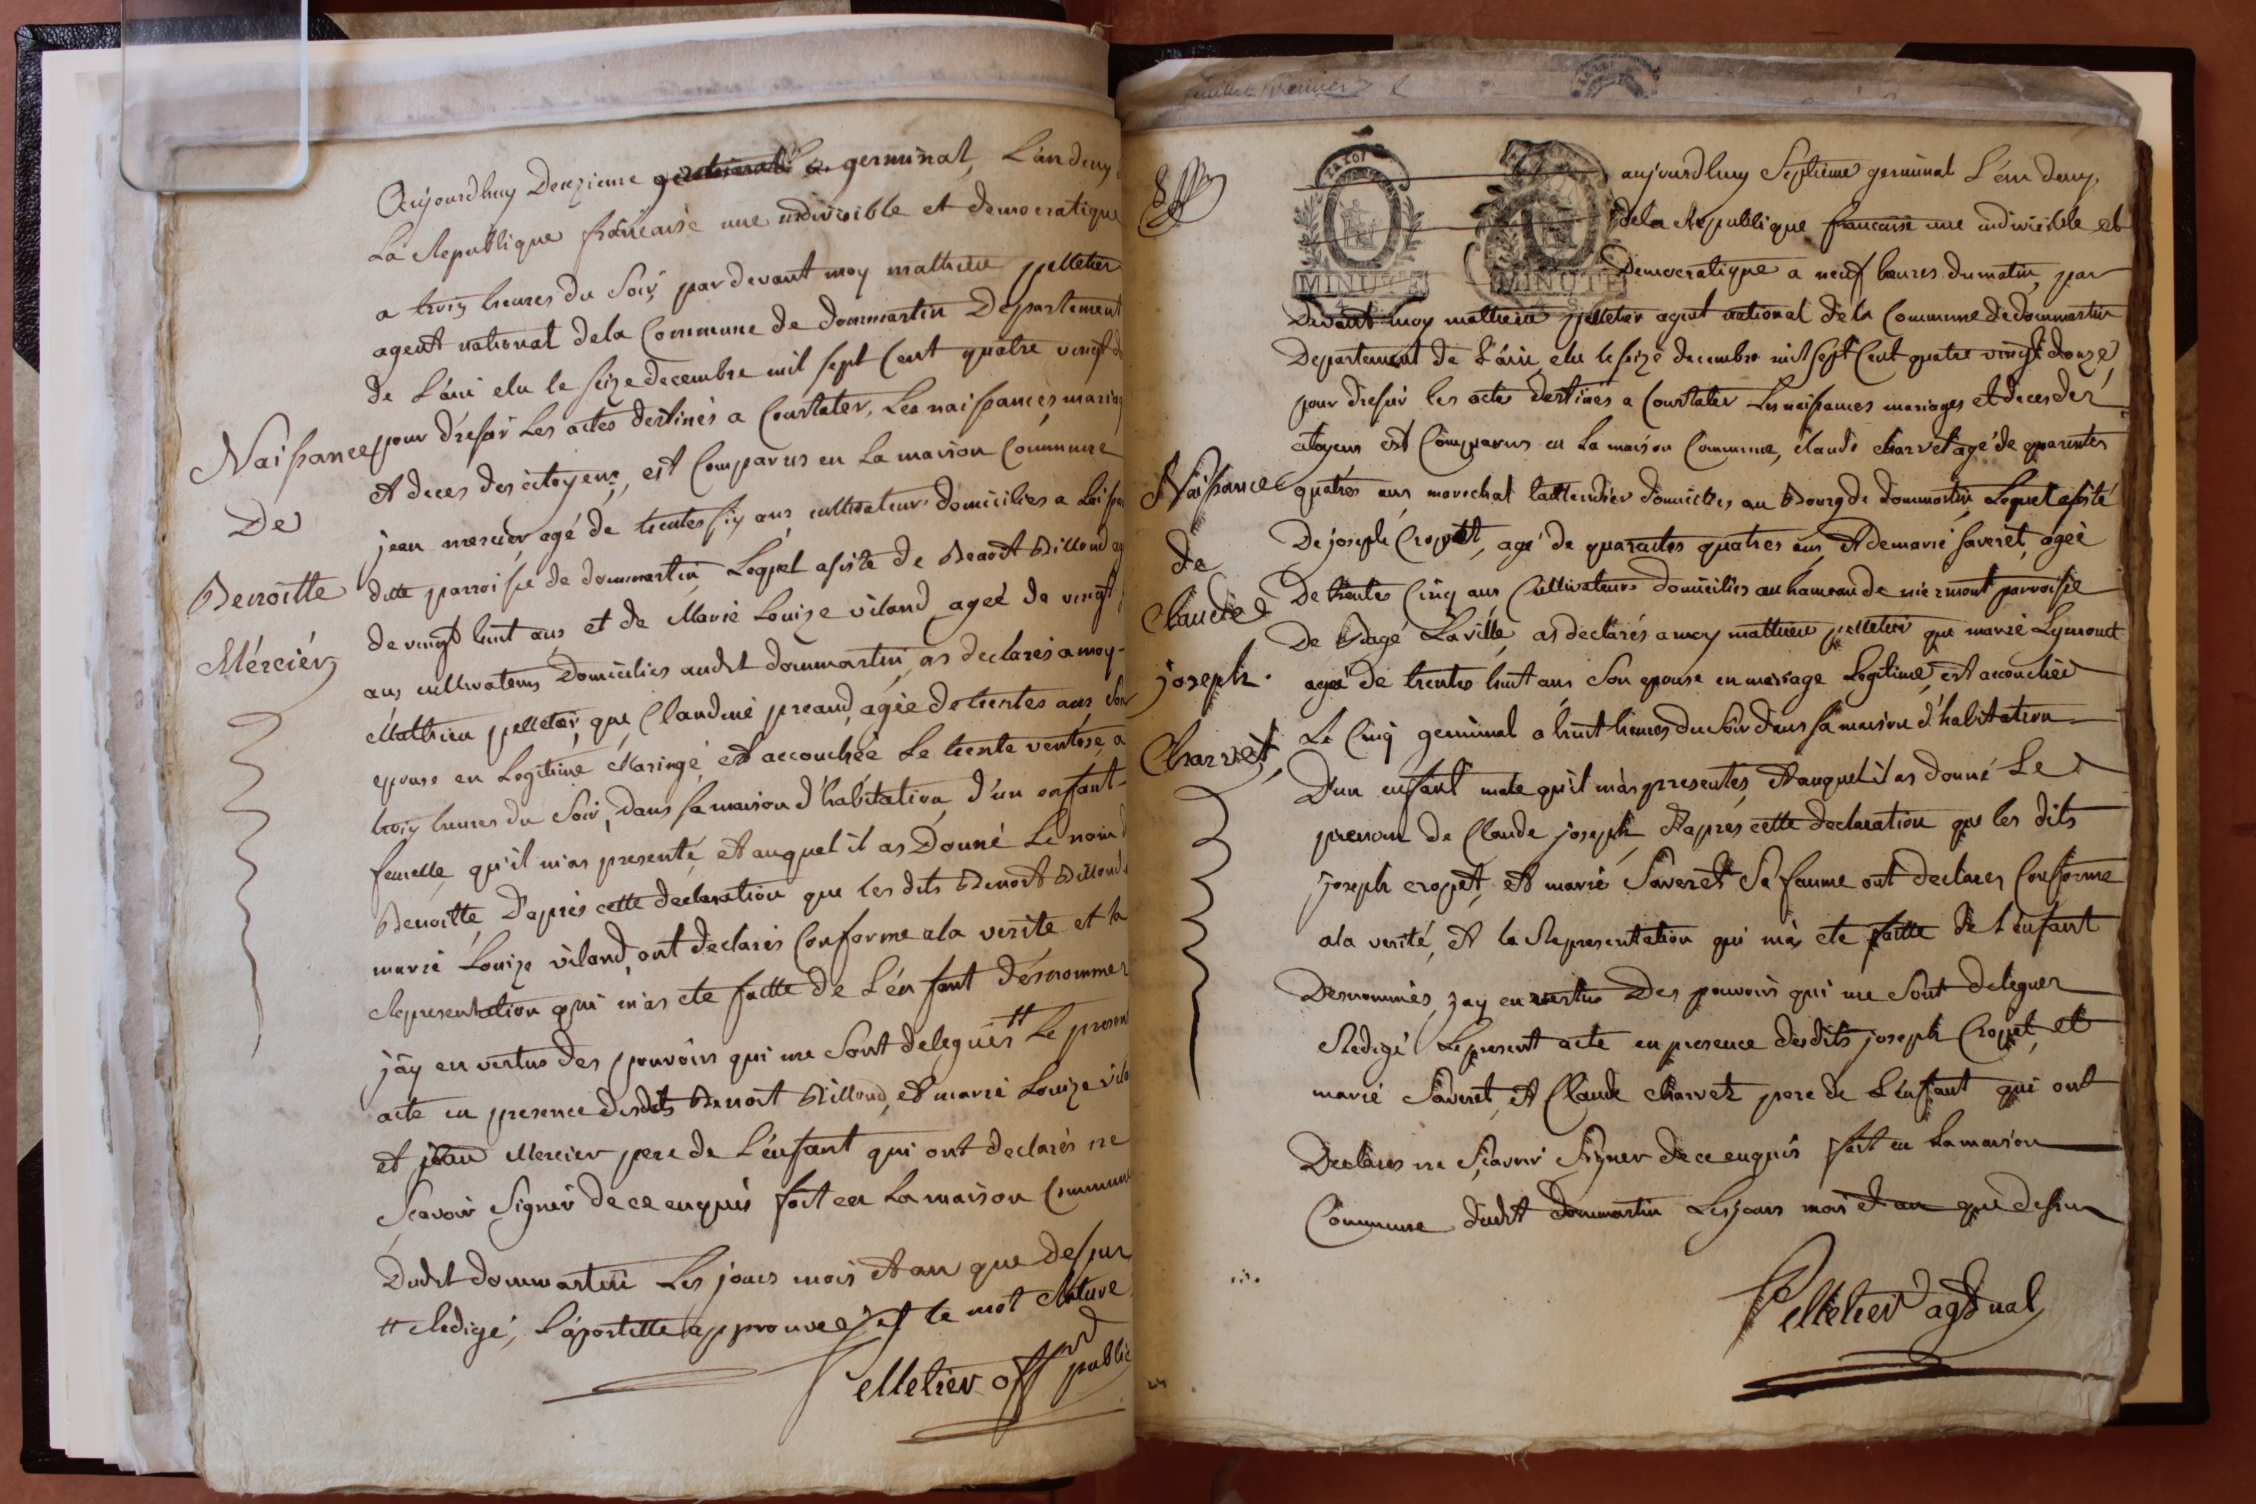 Aujourdhuy Deuzieme germinal, L'an deux
La Republique francaise une indivisible et democratique
a trois heures du Soir, par devant moy mathieu pelletier
agent national dela Commune de dommartin Departement
de L'ain elu le seize decembre mil sept Cent quatre vingt d
pour dresser Les actes destinés a Constater, Les naissances mariag
Et deces des citoyens, est Comparus en La maison Commune
jean mercier agé de trentes six ans cultivateur domicilies a
ditte parroisse de dommartin Lequel assisté de Benoit Billoud ag
de vingt huit ans et de Marie Louise viland agée de vingt
ans cultivateurs Domicilies audit dommartin, as declarés a moy
Mathieu pelletier, que Claudine preaud, agée de trentes ans Son
epouse en Legitime Mariage, est accouchée Le trente ventose, a
trois heures du Soir, dans sa maison d'habitation d'un enfant
femelle, qu'il m'as presenté, et auquel il as Donné Le nom d
Benoitte, D'apres cette declaration que les dits Benoit Billoud
marie Louise viland, ont declarés Conforme ala verite et la
Representation qui m'as ete faitte de L'enfant desnommer
j'ay en vertus des pouvoirs qui me Sont delegués tt Le present
acte en presence desdits Benoit Billoud, et marie Louize vila
et jean Mercier pere de L'enfant qui ont declarés ne
Scavoir Signer de ce enquis fait en La maison Commune
Dudit dommartin Les jours mois et an que dessur
tt Redigé, L'apostille approuvee et le mot
Pelletier off public
Naissance
De
Benoitte
Mércier
feuillet premier
MINUTE
MINUTE
aujourdhuy Septieme germinal L'an deux,
dela Republique francaise une indivisible et
Democratique a neuf heures dumatin, par
Devant moy mathieu pelletier agent national de la Commune dedommartin
Departement de L'ain, elu le seize decembre mil sept Cent quatre vingt douze,
pour dresser les actes destinés a Constater Les naissances mariages et deces des
citoyens est Comparus en La maison Commune, claude charvet agé de quarentes
quatres ans marechal taillendier domicilies au Bourg de dommartin, Lequel assisté
De joseph Cropet, agé de quarantes quatres ans, Et demarie Saveret, agée
De trentes Cinq ans Cultivateurs domicilies au hameau de miermont parroisse
De Bagé Laville, as declarés a moy mathieu pelletier que marie Lymonet
agée de trentes huit ans Son epouse en mariage Legitime, est accouchée
Le Cinq germinal a huit heures du Soir dans sa maison d'habitation
D'un enfant male qu'il m'as presentés, Et auquel il as donné Le
prenom de Claude joseph, D'apres cette declaration que les dits
joseph cropet, et marie Saveret Sa famme ont declarer Conforme
ala verité, et la Representation qui m'as ete faitte de L'enfant
Desnommés, jay en vertus Des pouvoirs qui me Sont deleguer
Redigé Le present acte en presence desdits joseph Cropet, et
marie Saveret, et Claude charvet pere de L'enfant qui ont
Declares ne Scavoir Signer de ce enquis fait en La maison
Commune dudit dommartin Les jours mois et an que dessur
Pelletier agt nal
Naissance
de
Claude
joseph
Charvet